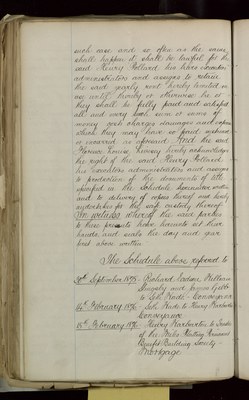 such case and so often as the same
shall happen it shall be lawful for the
said Henry Pollard his heirs executors
administrators and assigns to retain
the said yearly rent hereby limited in
use until thereby or otherwise he or
they shall be fully paid and satisfied
all and every such sum or sums of
money costs charges damages and expenses
which they may have so paid sustained
or incurred as aforesaid And the said
hereby acknowledge
the right of the said Henry Pollard
his executors administrators and assigns
to production of the documents of title
specified in the Schedule hereunder written
and to delivery of copies thereof and hereby
undertakes for the safe custody thereof
In witness whereof the said parties
to these presents have hereunto set their
hands and seals the day and year
first above written
The Schedule above referred to
30th September 1895 - Richard William
and
to Conveyance
14th February 1896 - to Henry
Conveyance
15th February 1896 - Henry to Trustees
of the Platting Permanent
Benefit Building Society -
Mortgage